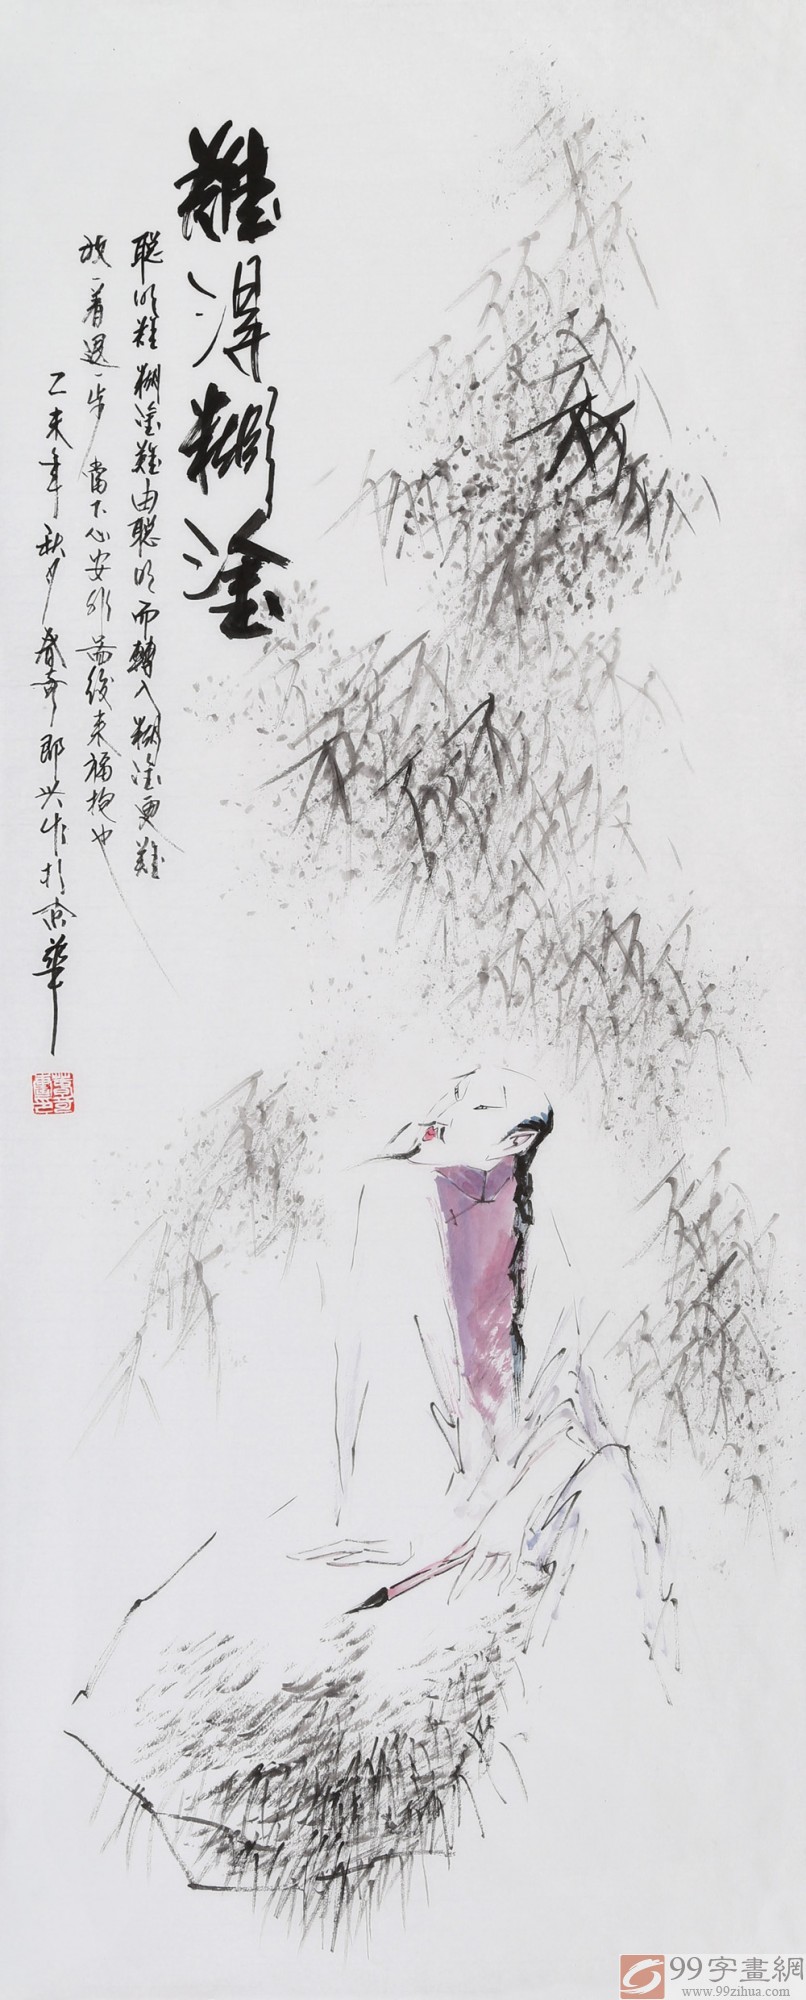 難得糊塗
聪明難糊塗難由聪明而轉入糊塗更難
放一着退一步當下心安非啚後來福抱也
乙未年秋月春奇即兴作于京華
99字畫網
www.99zihua.com